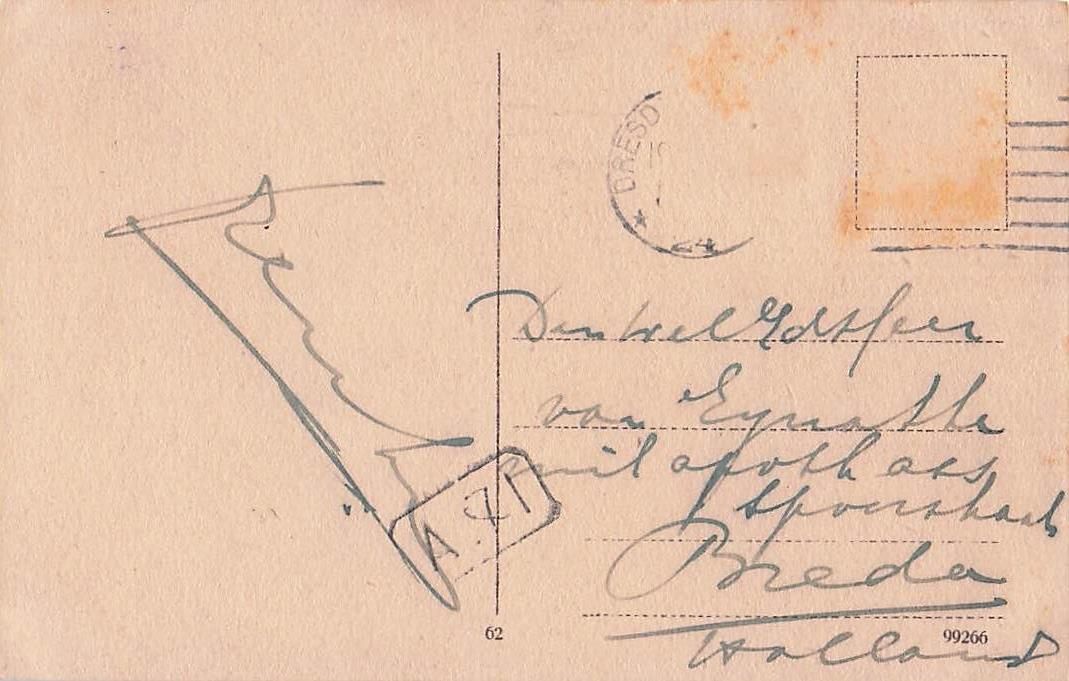 DRESD
24
Den Wel Ed Heer
van Eynatte
mil apoth ass
Spoorstraat
Breda
Holland
62
99266